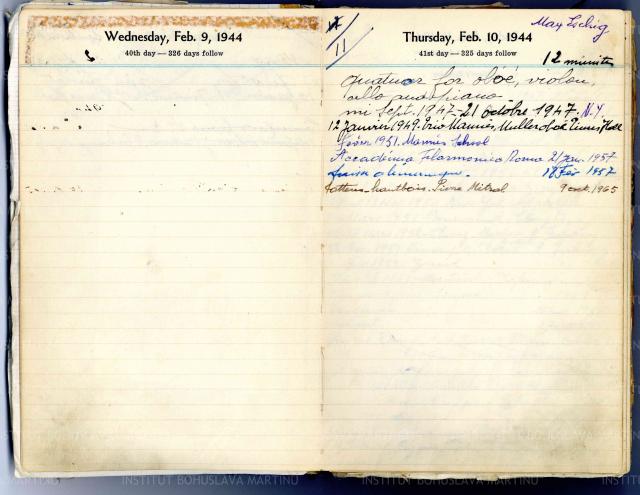 Wednesday, Feb. 9, 1944
40th day — 326 days follow
Thursday, Feb. 10, 1944
41st day — 325 days follow
May Eschig
11
12 minutes
quatuor for oboé, violon,
cello and piano
mi Sept. 1947-21 octobre 1947. N.Y.
12 Janvier 1949. Trio Mannes, Muller oboé Times Hall
Février 1951. Mannes School
Accademia Filarmonica Roma 21 Jan. 1957
18 Fév 1957
hautbois. Pierre Métral 9 oct. 1965
INSTITUT BOHUSLAVA MARTINŮ